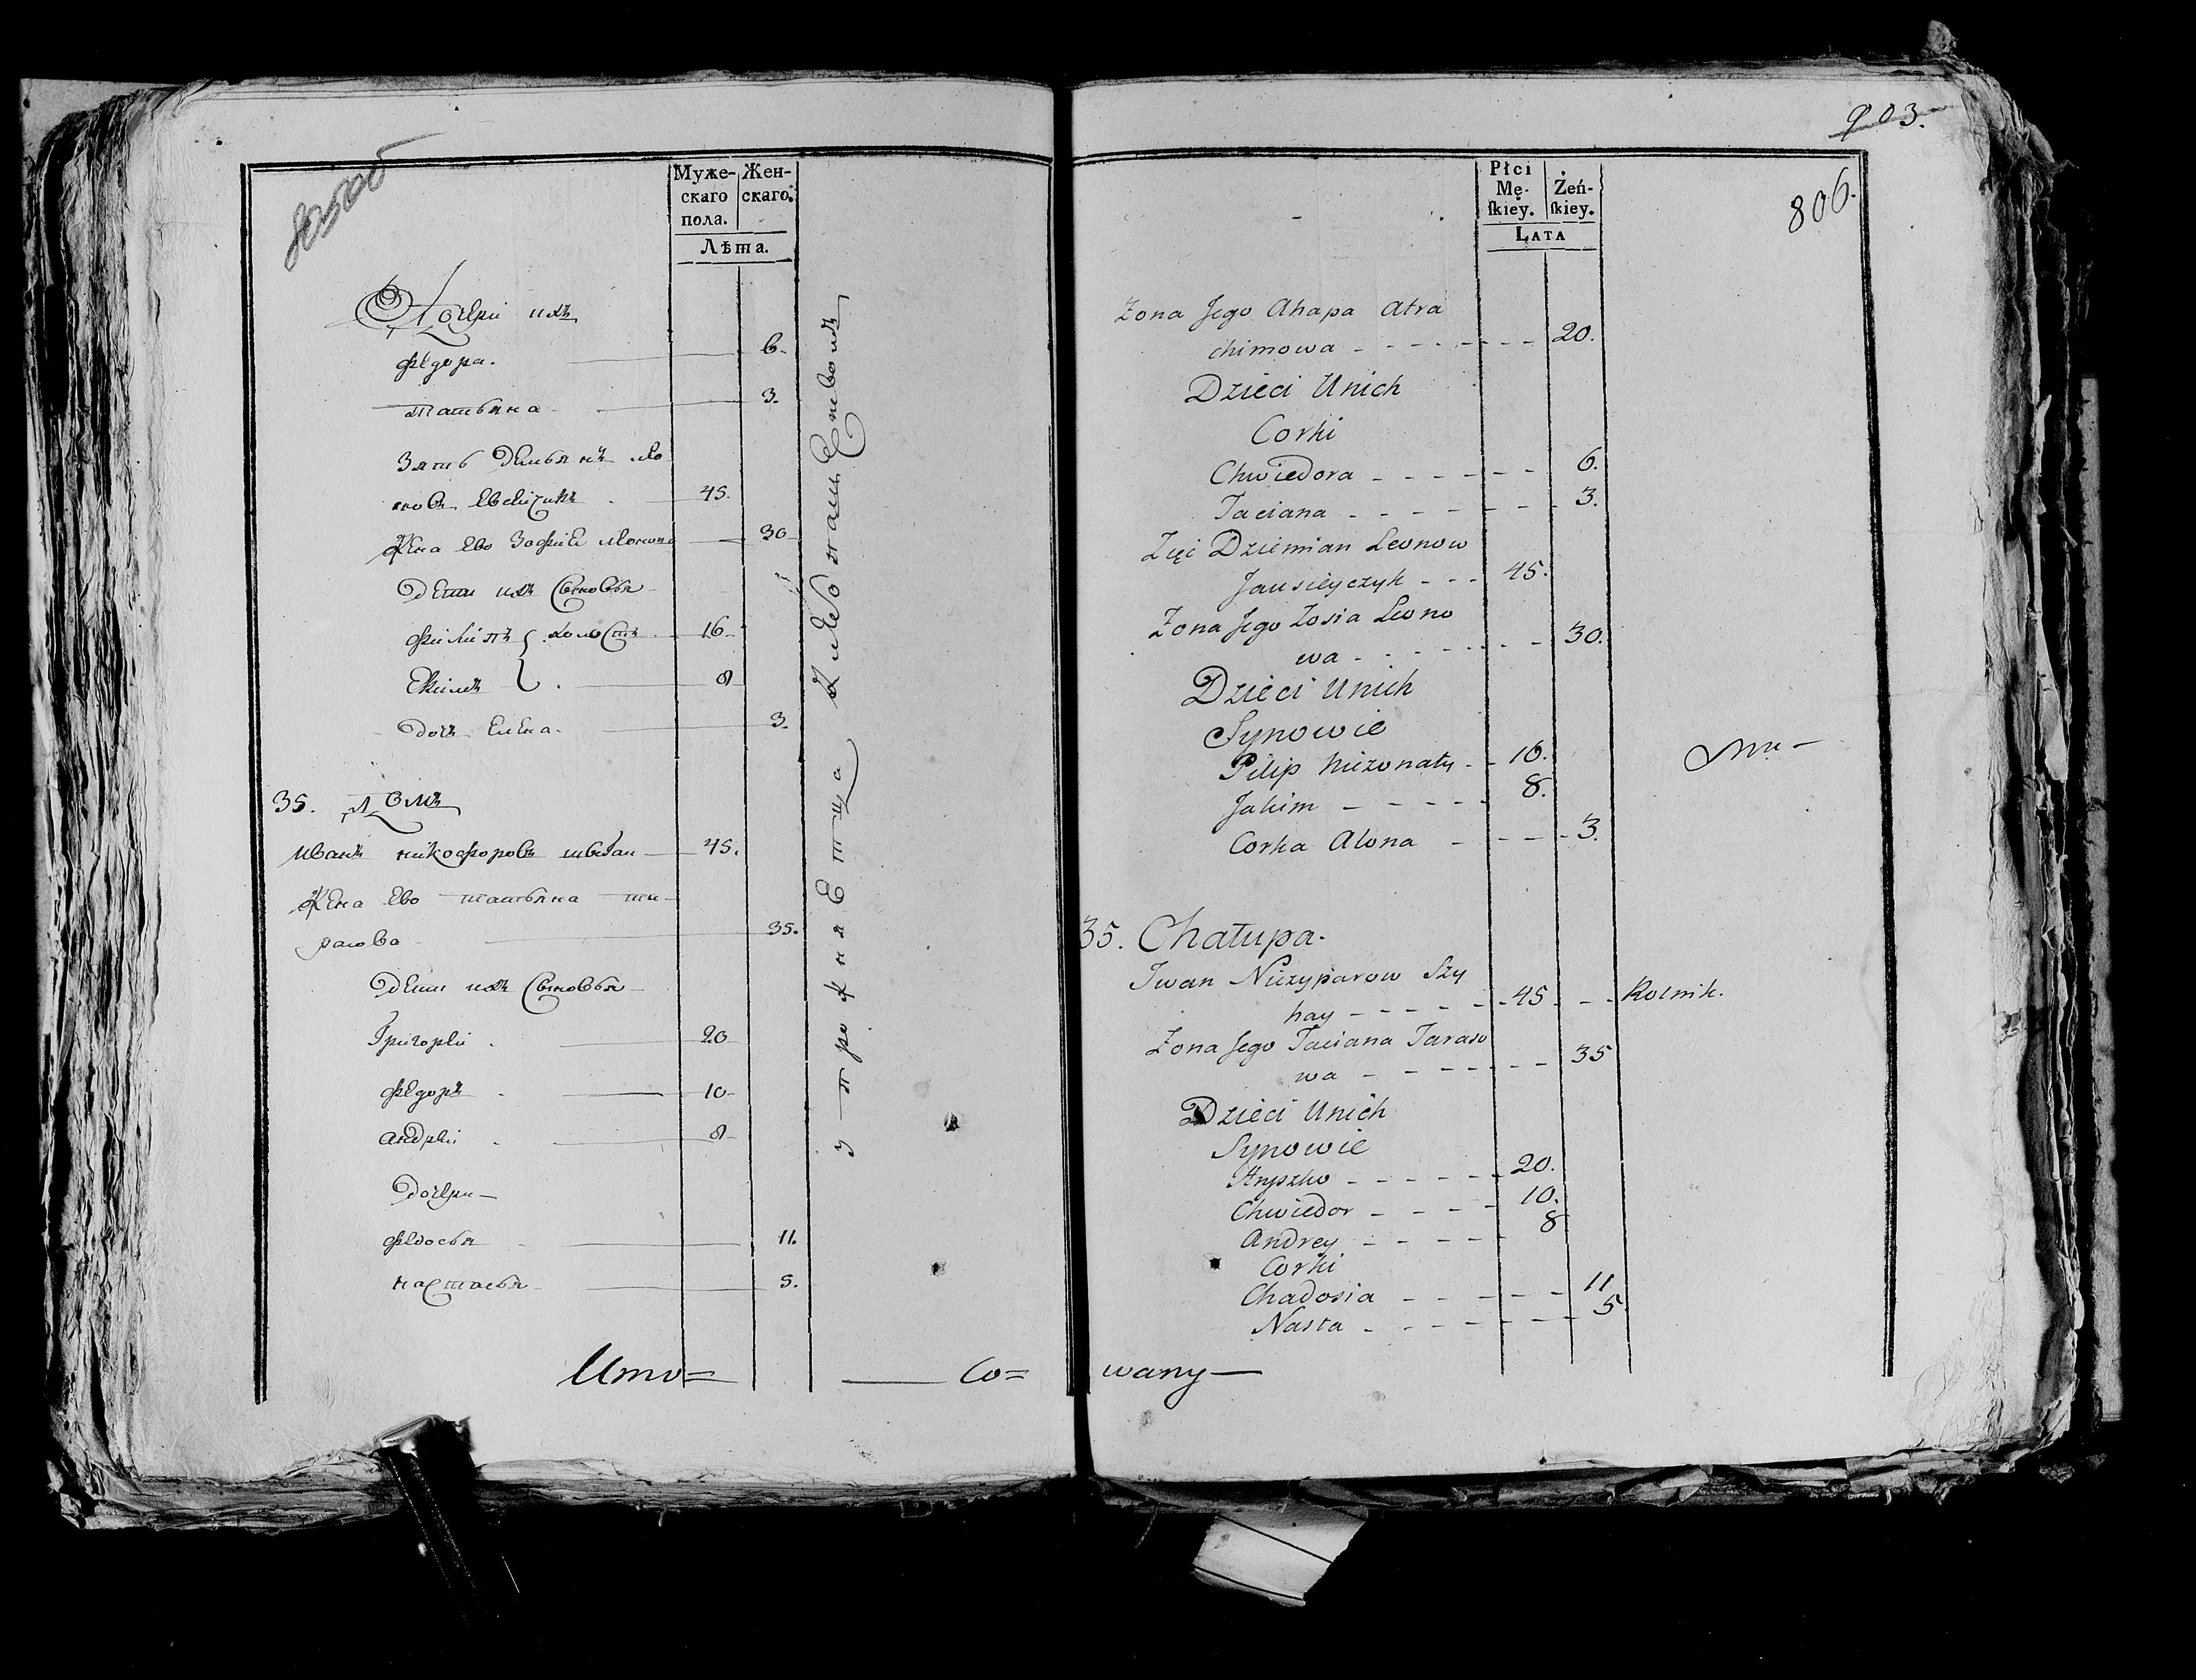 Муже-
скаго
пола.
Жен-
скаго.
Лѣта.
Дочери ихъ
федора. 6.
татьяна 3.
Зять демьянъ лео
новъ 45.
Жена ево Зофия леонов
30
дети ихъ сыновья
филипъ холостъ 16
екимъ 8
дочь елена 3.
35. Домъ
иванъ никофоровъ 45.
Жена ево татьяна та
расова 35.
дети ихъ сыновья
григорей 20
федоръ 10
андрей 8
дочери
федосья 11.
настасья 5.
903.
806.
Płci
Mę-
ſkiey.
Żeń-
ſkiey.
LATA
Zona Jego Ahapa Atra
chimowa 20.
Dzieci Unich
Corki
Chwiedora 6.
Taciana 3.
Zięć Dziemian Leonow
Jausieyczyk 45.
Zona Jego Zosia Leono
wa 30.
Dzieci Unich
Synowie
Pilip Niezonaty 16.
Jakim 8.
Corka Alona 3.
35. Chałupa.
Iwan Niczyparow Szy
hay 45 Rolnik.
Zona Jego Taciana Taraso
wa 35
Dzieci Unich
Synowie
Hryszko 20.
Chwiedor 10.
Andrey 8
Corki
Chadosia 11
Nasta 5
wany